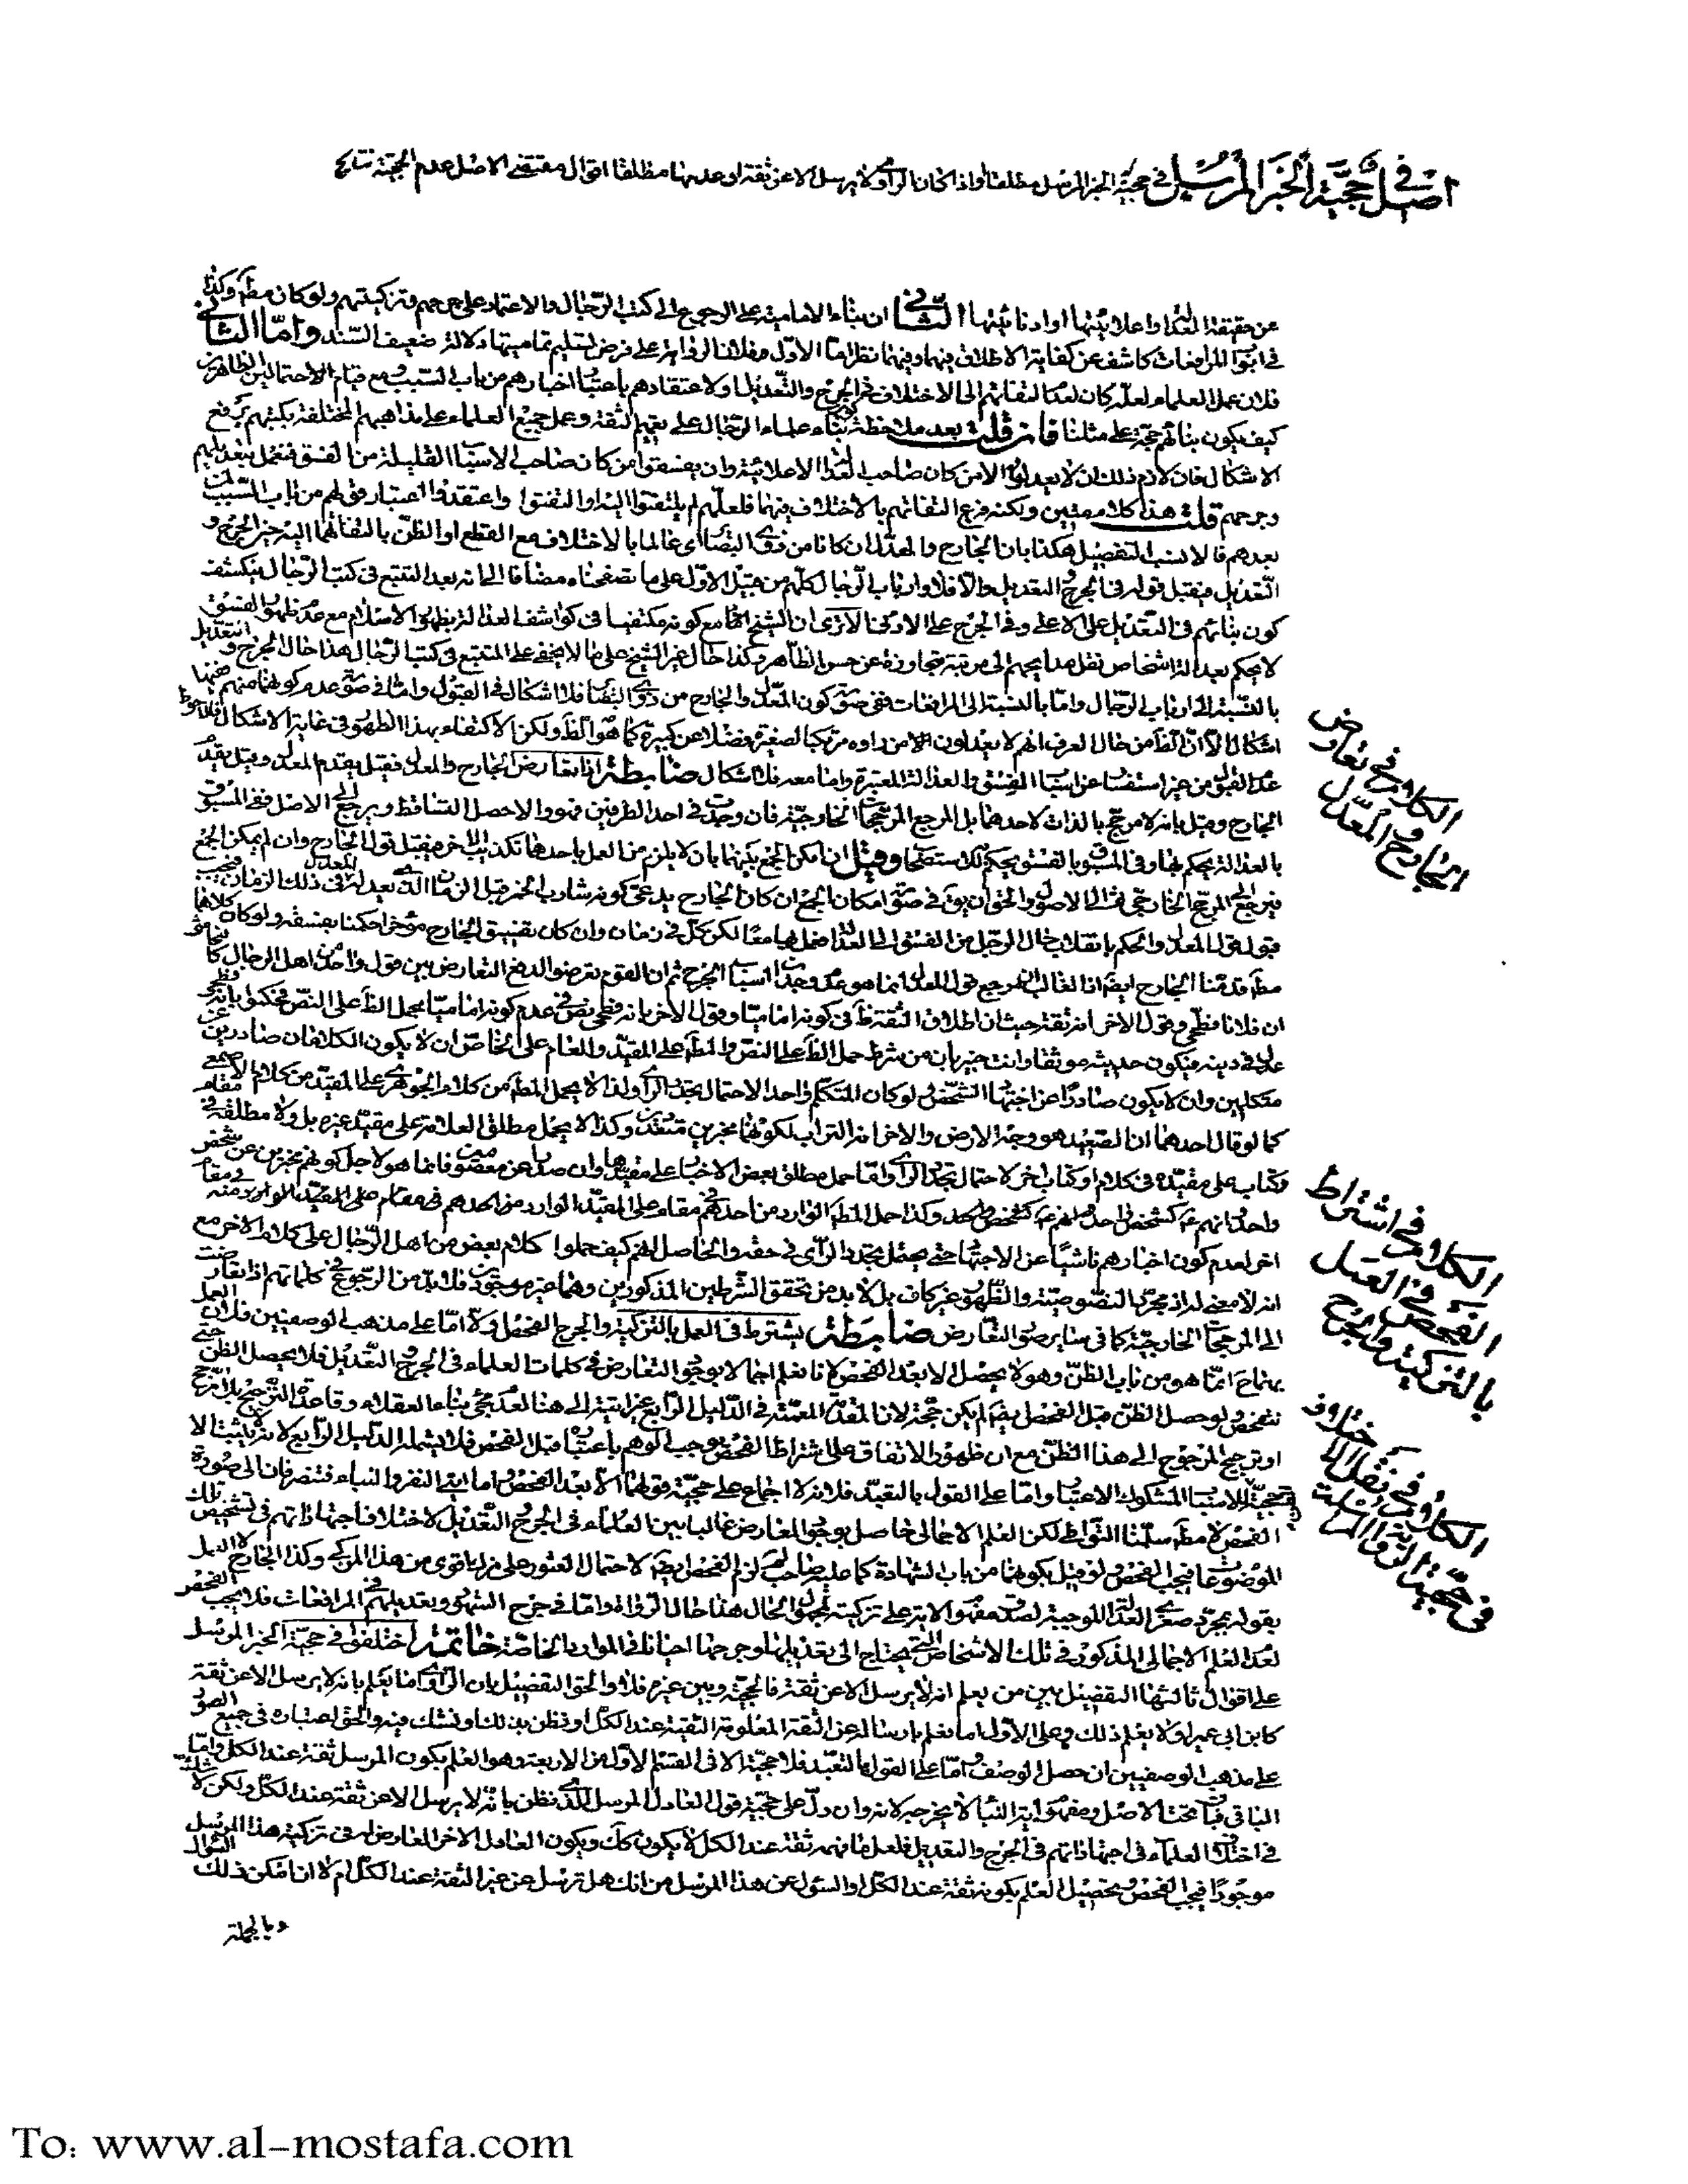 اصل في حجية الخبر المرسل في حجية الخبر المرسل مطلقا او اذا كان الراوي لا يرسل الا عن ثقة او عدمها مطلقا اقوال مقتضى الاصل عدم الحجية
عن حقيقة العدالة واعلائيتها او ادنائيتها الثاني ان بناء الامامية على الرجوع الى كتب الرجال والاعتماد على جرحهم وتزكيتهم ولو كان مط وكذا
في ابواب المرافعات كاشف عن كفاية الاطلاق فيهما وفيهما نظر اما الاول فلان الرواية على فرض تسليم تماميتها دلالة ضعيف السند واما الثاني
فلان عمل العلماء لعله كان لعدم التفاتهم الى الاختلاف في الجرح والتعديل او لاعتقادهم باعتبار اخبارهم من باب السبب ومع قيام الاحتمالين الظاهرين
كيف يكون بنائهم حجة على مثلنا فان قلت بعد ملاحظة بناء علماء الرجال على تعميم الثقة وعمل جميع العلماء على مذاهبهم المختلفة بكتبهم يرفع
الاشكال فان لازم ذلك ان لا يعدلوا الا من كان صاحب العدالة الاعلائية وان يفسقوا من كان صاحب الاسباب القليلة من الفسق فنعمل بتعديلهم
وجرحهم قلت هذا كلام متين ولكنه فرع التفاتهم بالاختلاف فيهما فلعلهم لم يلتفتوا اليه او التفتوا واعتقدوا اعتبار قولهم من باب السبب
بعدهم فالانسب التفصيل هكذا بان الجارح والمعدل ان كانا من ذوي البصائر اي عالما بالاختلاف مع القطع او الظن بالتفاتهما اليه حين الجرح و
التعديل فيقبل قوله في الجرح والتعديل والا فلا وارباب الرجال كلهم من قبيل الاول على ما تصفحناه مضافا الى انه بعد التتبع في كتب الرجال ينكشف
كون بنائهم في التعديل على الاعلى وفي الجرح على الادنى الا ترى ان الشيخ مع كونه مكتفيا في كواشف العدالة بظهور الاسلام مع عدم ظهور الفسق
لا يحكم بعدالة اشخاص نقل مدايحهم الى مرتبة متجاوزة عن حسن الظاهر وكذا حال غير الشيخ على ما لا يخفى على المتتبع في كتب الرجال هذا حال الجرح والتعديل
بالنسبة الى ارباب الرجال واما بالنسبة الى المرافعات ففي صورة كون المعدل والجارح من ذوي البصائر فلا اشكال في القبول واما في صورة عدم كونهما منهم ففيها
اشكال الا ان الظ من حال العرف انهم لا يعدلون الا من راوه مرتكبا لصغيرة فضلا عن كبيرة كما هو الظ ولكن الاكتفاء بهذا الظهور في غاية الاشكال فالاحوط
عدم القبول من غير استفسار عن اسباب الفسق والعدالة المعتبرة واما معه فلا اشكال ضابطة اذا تعارض الجارح والمعدل فقيل يقدم المعدل وقيل يقدم
الجارح وقيل بانه لا مرجح بالذات لاحدهما بل المرجع المرجحات الخارجية فان وجدت في احد الطرفين فهو والا حصل التساقط ويرجع الى الاصل ففي المسبوق
بالعدالة يحكم بها وفي المسبوق بالفسق يحكم بذلك استصحابا وقيل ان امكن الجمع بينهما بان لا يلزم من العمل باحدهما تكذيب الاخر فيقبل قول الجارح وان لم يمكن الجمع
فيرجع الى المرجح الخارجي ثم الى الاصول والحق ان يق في صورة امكان الجمع ان كان الجارح يدعى كونه شارب الخمر قبل الزمان الذي يعدله المعدل في ذلك الزمان فيجب
قبول قول المعدل والحكم بانقلاب حال الرجل من الفسق الى العدالة فعمل بهما معا لكن كل في زمان وان كان تفسيق الجارح مؤخرا حكمنا بفسقه ولو كان كلاهما
مط قدمنا الجارح ايضا اذ الغالب ان مرجع قول المعدل انما هو عدم وجدان اسباب الجرح ثم ان القوم تعرضوا لدفع التعارض بين قول واحد من اهل الرجال كالنجاشي
ان فلانا فطحي وقول الاخر انه ثقة حيث ان اطلاق الثقة ظ في كونه اماميا وقول الاخر بانه فطحي نص في عدم كونه اماميا فيحمل الظ على النص فيحكمون بانه فطحي
عدل في دينه فيكون حديثه موثقا وانت خبير بان من شرط حمل الظ على النص والمط على المقيد والعام على الخاص ان لا يكون الكلامان صادرين عن
متكلمين وان لا يكون صادرا عن اجتهاد الشخص ولو كان المتكلم واحدا لاحتمال تجدد الراي ولذا لا يحمل المط من كلام الجوهري على المقيد من كلام الاصمعي
كما لو قال احدهما ان الصعيد هو وجه الارض والاخر انه التراب لكونهما مخبرين متعددين وكذا لا يحمل مطلق العلامة على مقيد غيره بل ولا مطلقه في مقام
وكتاب على مقيده في كلام او كتاب اخر لاحتمال تجدد الراي واما حمل مطلق بعض الاخبار على مقيدها وان صدرا عن معصومين فانما هو لاجل كونهم مخبرين عن شخص
واحد وانهم كشخص واحد وكذا حمل المط الوارد من احدهم في مقام على المقيد الوارد من احدهم في مقام
اخر لعدم كون اخبارهم ناشيا عن الاجتهاد حتى يحتمل تجدد الراي في حقه والحاصل انهم كيف حملوا كلام بعض من اهل الرجال على كلام الاخر مع
انه لا معنى له اذ مجرد النصوصية والظهور غير كاف بل لا بد من تحقق الشرطين المذكورين وهما غير موجودين فلا بد من الرجوع في كلماتهم اذا تعارضت
الى المرجحات الخارجية كما في ساير صور التعارض ضابطة يشترط في العمل بالتزكية والجرح الفحص اما على مذهب الوصفيين فلان العمل
بهما ح انما هو من باب الظن وهو لا يحصل الا بعد الفحص لانا نعلم اجمالا بوجود التعارض في كلمات العلماء في الجرح والتعديل فلا يحصل الظن حتى
نتفحص ولو حصل الظن قبل الفحص ايضا لم يكن حجة لان المقدمة المعممة في الدليل الرابع غير اتية الى هنا لعدم مجيء بناء العقلاء وقاعدة الترجيح بلا مرجح
او ترجيح المرجوح الى هذا الظن مع ان ظهور الاتفاق على اشتراط الفحص يوجب الوهم باعتباره قبل الفحص فلا يشمله الدليل الرابع لانه لا يثبت الا
حجية الاسباب المشكوك الاعتبار واما على القول بالتعبد فلانه لا اجماع على حجية قولهما الا بعد الفحص اما ايتي النفر والنباء فتنصرفان الى صورة
الفحص لا مط سلمنا التواطي لكن العلم الاجمالي حاصل بوجود المعارض غالبا بين العلماء في الجرح والتعديل لاختلاف اجتهاداتهم في تشخيص تلك
الموضوعات فيجب الفحص ولو قيل بكونهما من باب الشهادة كما عليه صاحب لم لزم الفحص ايضا لاحتمال العثور على مزك اقوى من هذا المزكي وكذا الجارح
لعدم العلم الاجمالي المذكور في تلك الاشخاص التي يحتاج الى تعديلها وجرحها احيانا في الموارد الخاصة خاتمة اختلفوا في حجية الخبر المرسل
على اقوال ثالثها التفصيل بين من يعلم انه لا يرسل الا عن ثقة فالحجية وبين غيره فلا والحق التفصيل بان الراوي اما يعلم بانه لا يرسل الا عن ثقة
كابن ابي عمير او لا يعلم ذلك وعلى الاول اما نعلم بارساله عن الثقة المعلومة الثقية عند الكل او نظن بذلك او نشك فيه والحق اعتباره في جميع الصور
على مذهب الوصفيين ان حصل الوصف واما على القول بالتعبد فلا حجية الا في القسم الاول من الاربعة وهو العلم بكون المرسل ثقة عند الكل واما
الباقي فباق تحت الاصل ومفهوم اية النباء لا يخرجه لانه وان دل على حجية قول العادل المرسل الذي نظن بانه لا يرسل الا عن ثقة عند الكل ولكن لا شك
في اختلاف العلماء في اجتهاداتهم في الجرح والتعديل فلعل ما فهمه ثقة عند الكل لا يكون كك ويكون العادل الاخر المعارض له في تزكية هذا المرسل
موجودا فيجب الفحص وتحصيل العلم بكونه ثقة عند الكل او السؤال عن هذا المرسل من انك هل ترسل عن غير الثقة عند الكل ام لا ان امكن ذلك السؤال
وبالجملة
الكلام في تعارض
الجارح والمعدل
الكلام في اشتراط
الفحص في العمل
بالتزكية والجرح
الكلام في نقل الاختلاف
في حجية الرواية المرسلة
To: www.al-mostafa.com